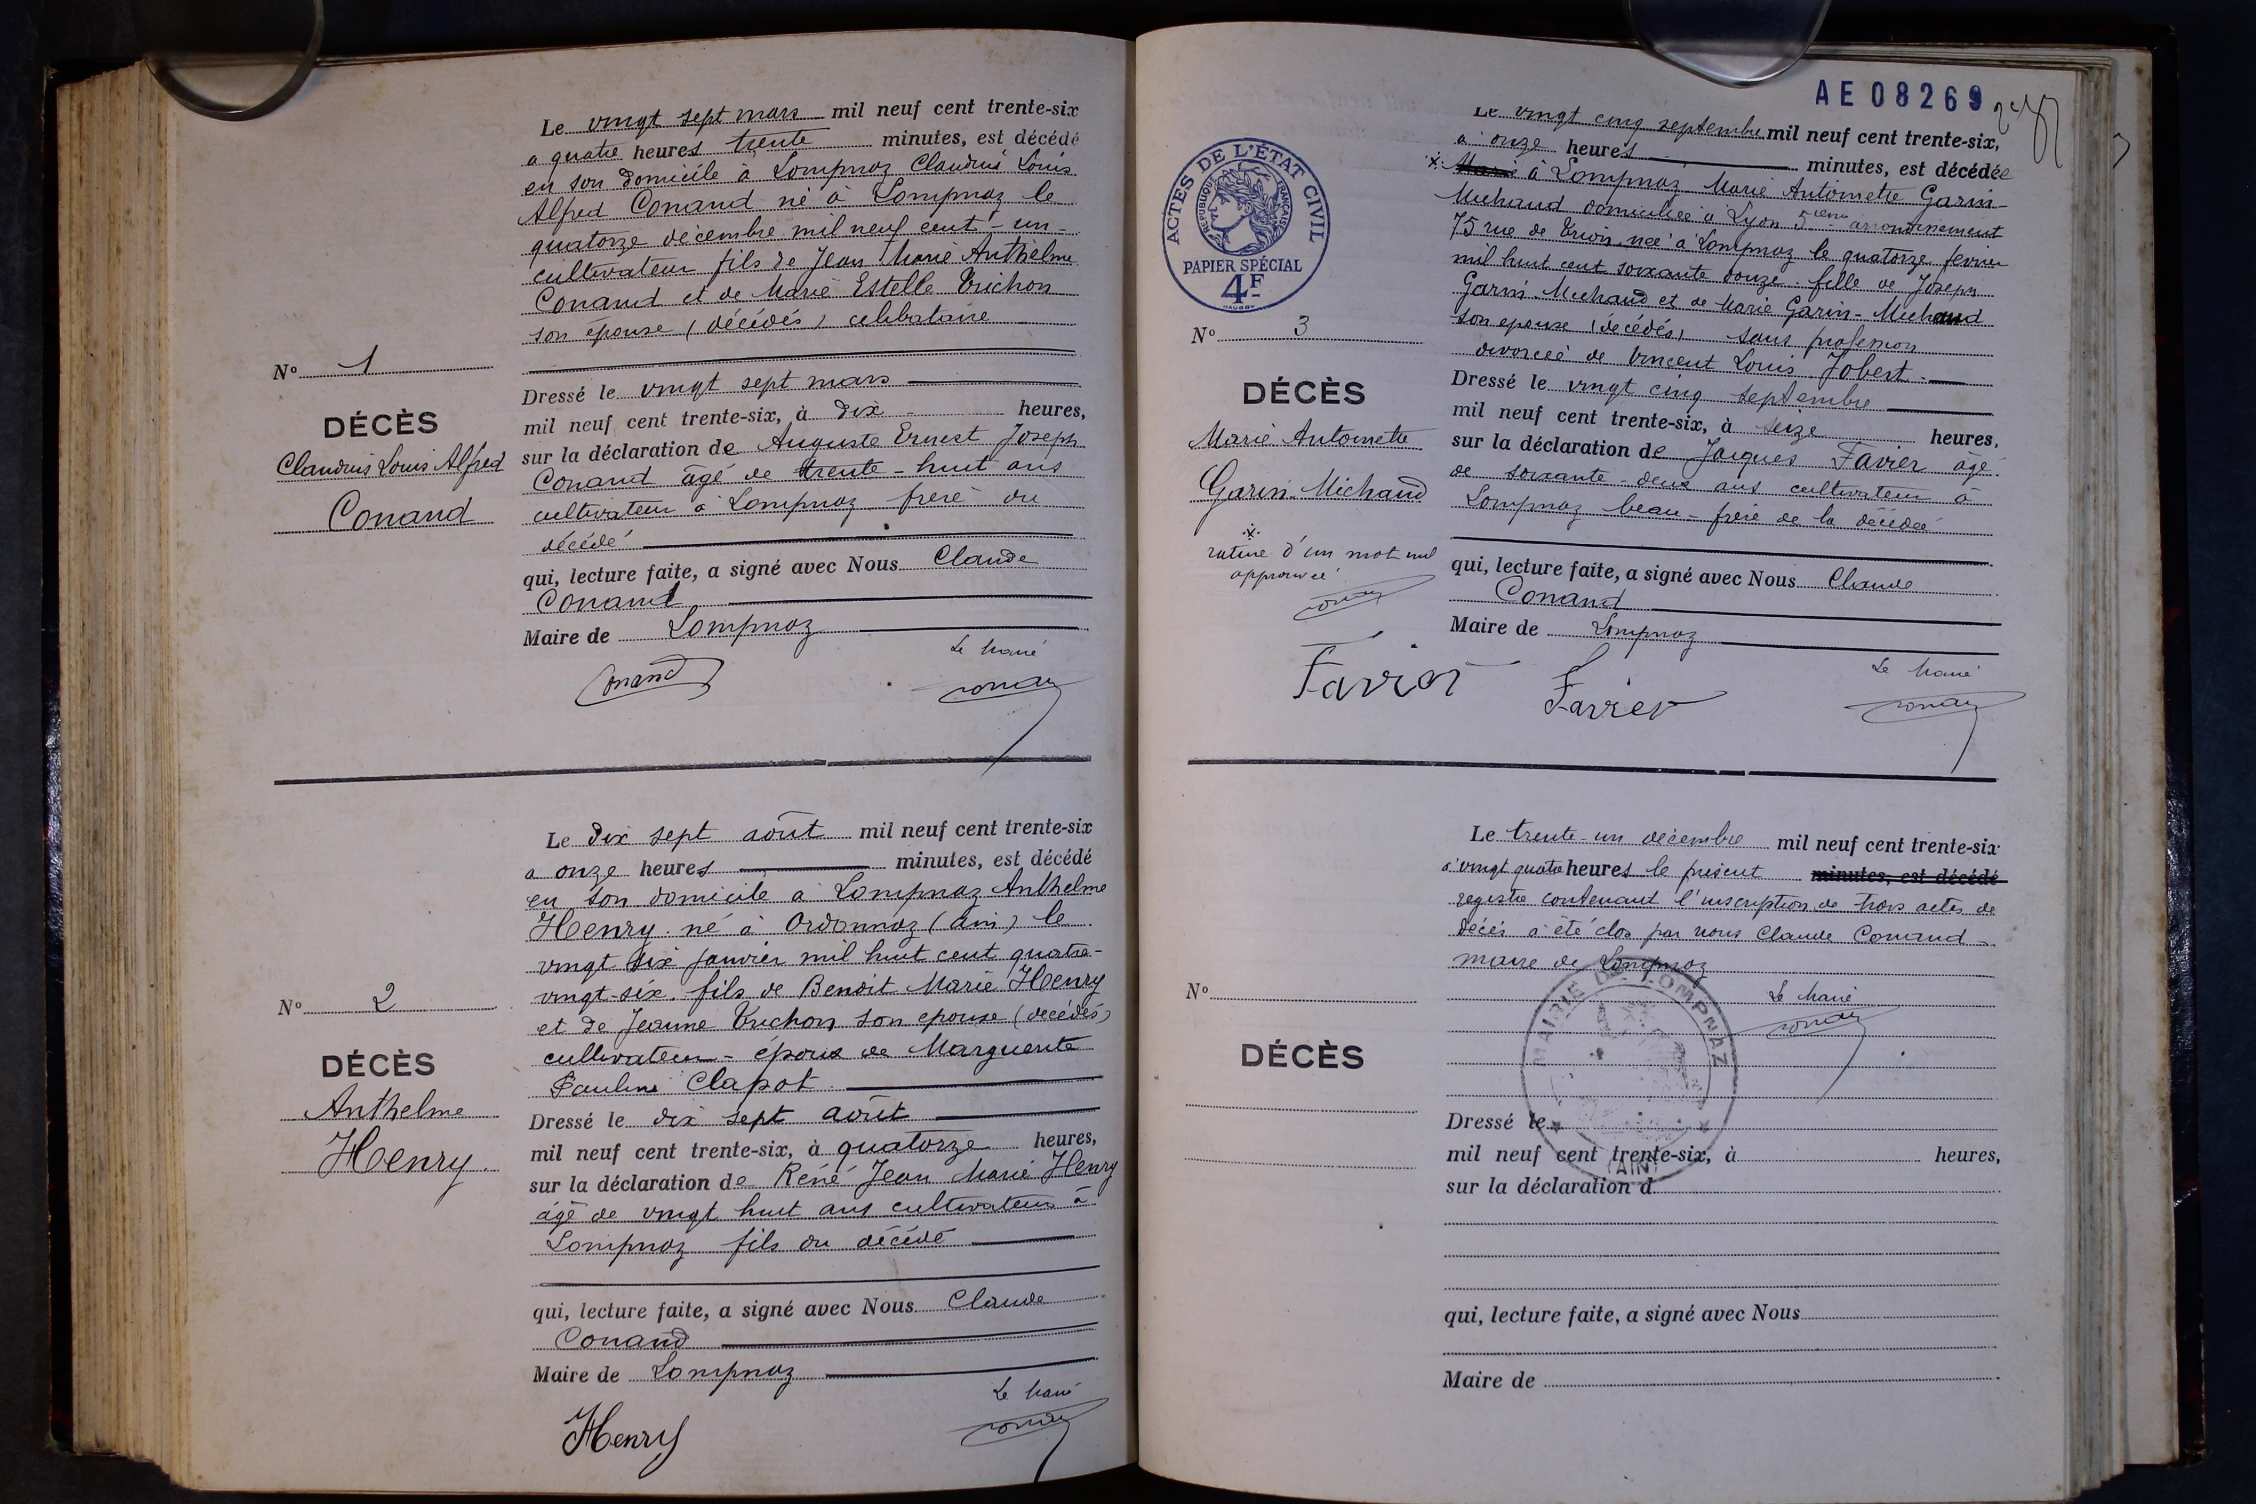 Le vingt sept mars mil neuf cent trente-six
a quatre heures trente minutes, est décédé
en son domicile à Lompnaz Claudius Louis
Alfred Conand né à Lompnaz le
quatorze décembre mil neuf cent-un-
cultivateur fils de Jean Marie Anthelme
Conand et de Marie Estelle Trichon
son épouse (décédés) célibataire
N° 1
DÉCÈS
Claudius Louis Alfred
Conand
Dressé le vingt sept mars
mil neuf cent trente-six, à dix heures,
sur la déclaration de Auguste Ernest Joseph
Conand âgé de trente-huit ans
cultivateur à Lompnaz frère du
décédé
qui, lecture faite, a signé avec Nous Claude
Conand
Maire de Lompnaz
Le Maire
Conand
Conand
Le dix sept août mil neuf cent trente-six
a onze heures minutes, est décédé
en son domicile a Lompnaz Anthelme
Henry né à Ordonnaz (ain) le
vingt six janvier mil huit cent quatre-
vingt-six fils de Benoit Marie Henry
et de Jeanne Trichon son epouse (décédés)
cultivateur - époux de Marguerite
Pauline Clapot
N° 2
DÉCÈS
Anthelme
Henry.
Dressé le dix sept août
mil neuf cent trente-six, à quatorze heures,
sur la déclaration de Réné Jean Marie Henry
âgé de vingt huit ans cultivateur à
Lompnaz fils du décédé
qui, lecture faite, a signé avec Nous Claude
Conand
Maire de Lompnaz
Le Maire
Henry
Conand
AE 08269
ACTES DE L'ÉTAT CIVIL
RÉPUBLIQUE FRANÇAISE
PAPIER SPÉCIAL
4F
Le vingt cinq septembre mil neuf cent trente-six,
a onze heures minutes, est décédée
à Lompnaz Marie Antoinette Garin-
Michaud domiciliée à Lyon 5ième arrondissement
75 rue de Trion née à Lompnaz le quatorze fevrier
mil huit cent soixante douze - fille de Joseph
Garin-Michaud et de Marie Garin-Michaud
son epouse (décédés) sans profession
divorcée de Vincent Louis Jobert
N° 3
DÉCÈS
Marie Antoinette
Garin-Michaud
rature d'un mot nul
approuvée
Conand
Dressé le vingt cinq septembre
mil neuf cent trente-six, à seize heures,
sur la déclaration de Jacques Favier âgé
de soixante-deux ans cultivateur à
Lompnaz beau-frère de la décédée
qui, lecture faite, a signé avec Nous Claude
Conand
Maire de Lompnaz
Le Maire
Favier
Favier
Conand
Le trente-un décembre mil neuf cent trente-six
à vingt quatre heures le présent minutes, est décédé
registre contenant l'inscription de trois actes de
décès a été clos par nous Claude Conand
maire de Lompnaz
Le Maire
Conand
MAIRIE DE LOMPNAZ
(AIN)
N°
DÉCÈS
Dressé le
mil neuf cent trente-six, à heures,
sur la déclaration d
qui, lecture faite, a signé avec Nous
Maire de